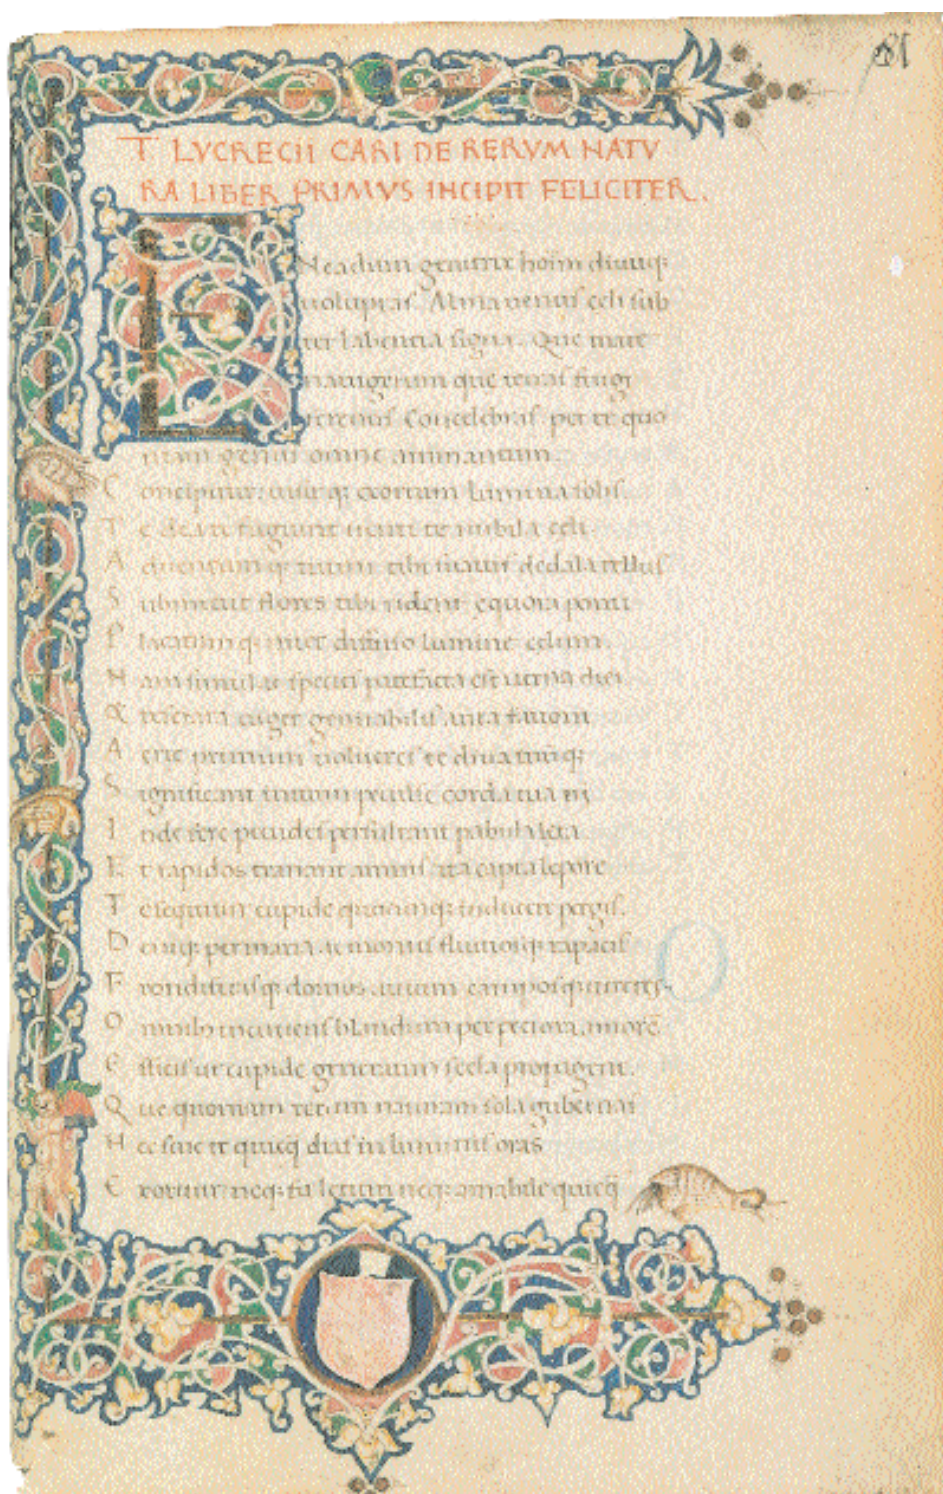 T LVCRECII CARI DE RERVM NATV
RA LIBER PRIMVS INCIPIT FELICITER.
ENeadum genitrix hoim diuuq:
uoluptas Alma uenus celi sub
ter labentia signa. Que mare
nauigerum que terras frugi
ferentis Concelebras per te quo
niam genus omne animantum
Concipitur: uisitq; exortum lumina solis.
Te dea te fugiunt uenti te nubila celi
Aduentum q; tuum tibi suauis dedala tellus
Submittit flores tibi rident equora ponti
Placatum q; nitet diffuso lumine celum.
Nam simul ac speciei patefacta est uerna diei
Et reserata uiget genitabilis aura fauoni
Aerie primum uolucres te diua tuuq;
Significant initum perculse corda tua ui
Inde fere pecudes persultant pabula leta
Et rapidos tranant amnis ita capta lepore
Te sequitur cupide quocunq; inducere pergis.
Deniq; per maria ac montis fluuiosq; rapacis
Frondiferasq; domos auium camposq; uirentis
Omnib; incutiens blandum per pectora amorē
Efficis ut cupide generatim secla propagent.
Que quoniam rerum naturam sola gubernas
Nec sine te quicq̄ dias in luminis oras
Exoritur: neq; fit letum neq; amabile quicq̄